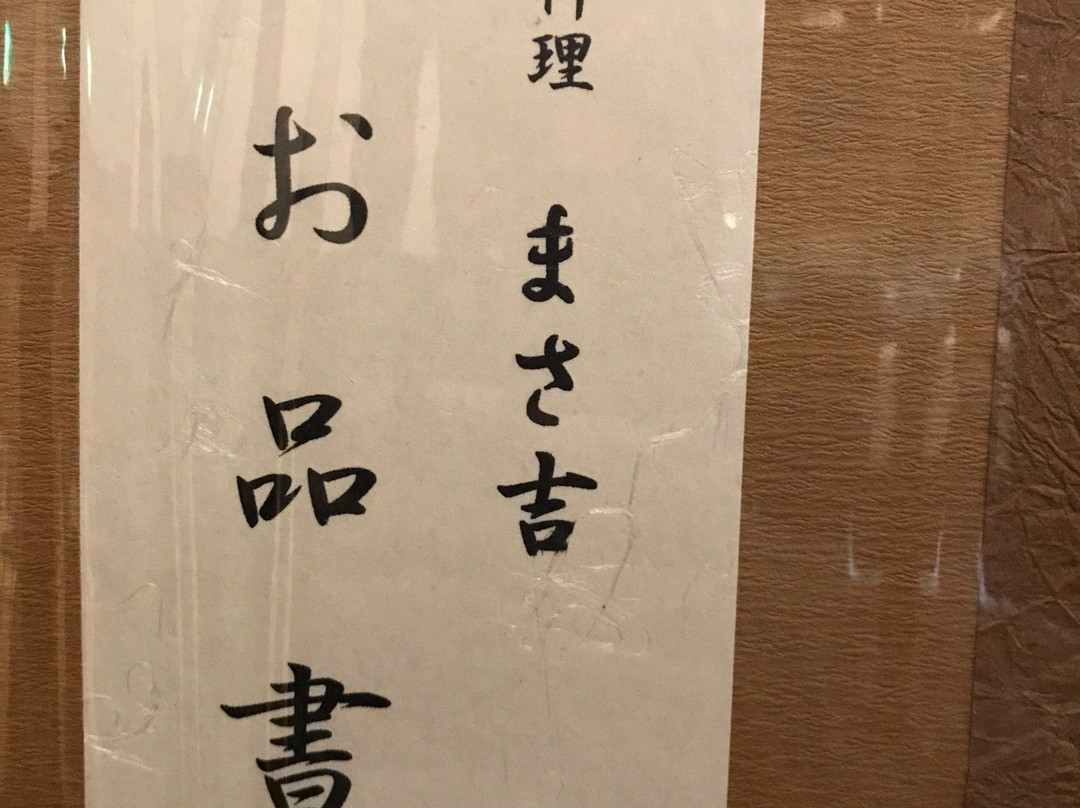 理 まさ吉
お品書